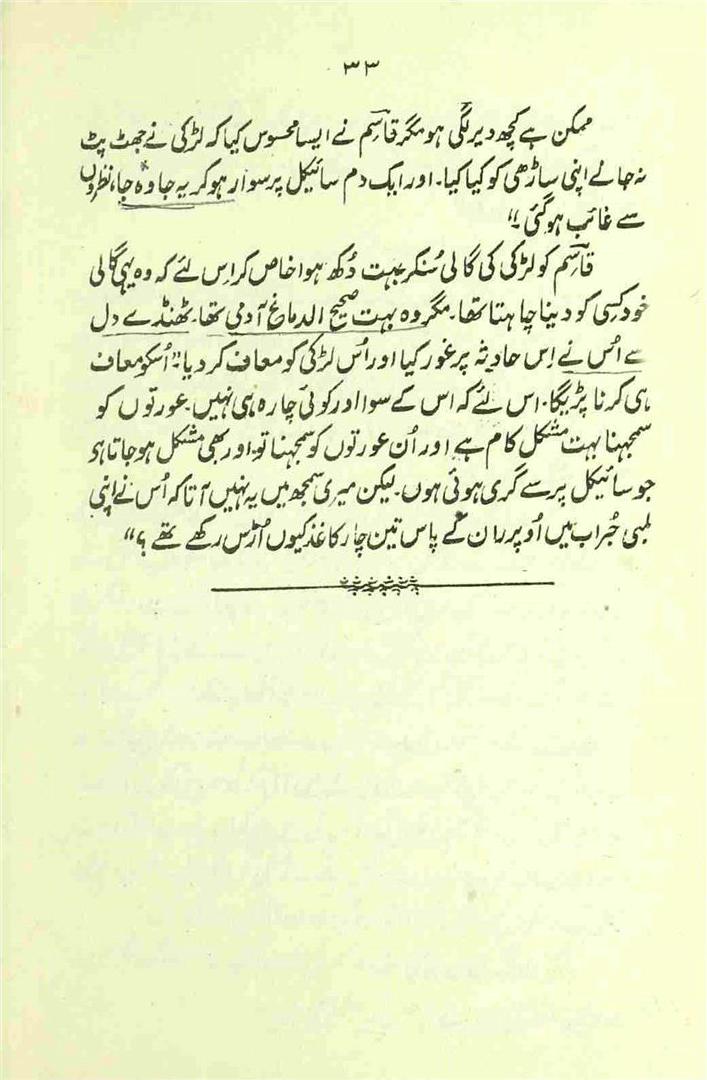 ۳۳
ممکن ہے کچھ دیر لگی ہو مگر قاسم نے ایسا محسوس کیا کہ لڑکی نے جھٹ پٹ
نہ جانے اپنی ساڑھی کو کیا کیا۔ اور ایک دم سائیکل پر سوار ہو کر یہ جا وہ جا، نظروں
سے غائب ہو گئی۔"
قاسم کو لڑکی کی گالی سُنکر بہت دُکھ ہوا خاص کر اس لئے کہ وہ یہی گالی
خود کسی کو دینا چاہتا تھا۔ مگر وہ بہت صحیح الدماغ آدمی تھا۔ ٹھنڈے دل
سے اُس نے اِس حادثہ پر غور کیا اور اُس لڑکی کو معاف کر دیا۔" اُسکو معاف
ہی کرنا پڑیگا۔ اس لئے کہ اس کے سوا اور کوئی چارہ ہی نہیں۔ عورتوں کو
سمجہنا بہت مشکل کام ہے اور اُن عورتوں کو سمجہنا تو۔ اور بھی مشکل ہو جاتا ہو
جو سائیکل پر سے گری ہوئی ہوں۔ لیکن میری سمجھ میں یہ نہیں آتا کہ اُس نے اپنی
لمبی جُراب میں اُوپر ران کے پاس تین چار کاغذ کیوں اُڑس رکھے تھے ؟"